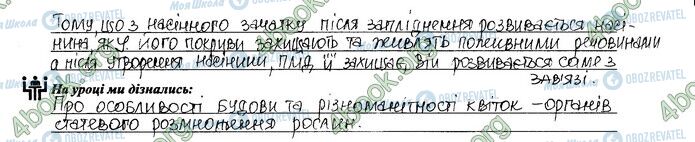 Тому, що з насінного зачатку після запліднення розвивається насі-
нина, яку його покриви захищають та живлять поживними речовинами
а після утворення насінини, плід її захищає. Він розвивається саме з
зав'язі.
На уроці ми дізнались:
Про особливості будови та різноманітності квіток – органів
статевого розмноження рослин.